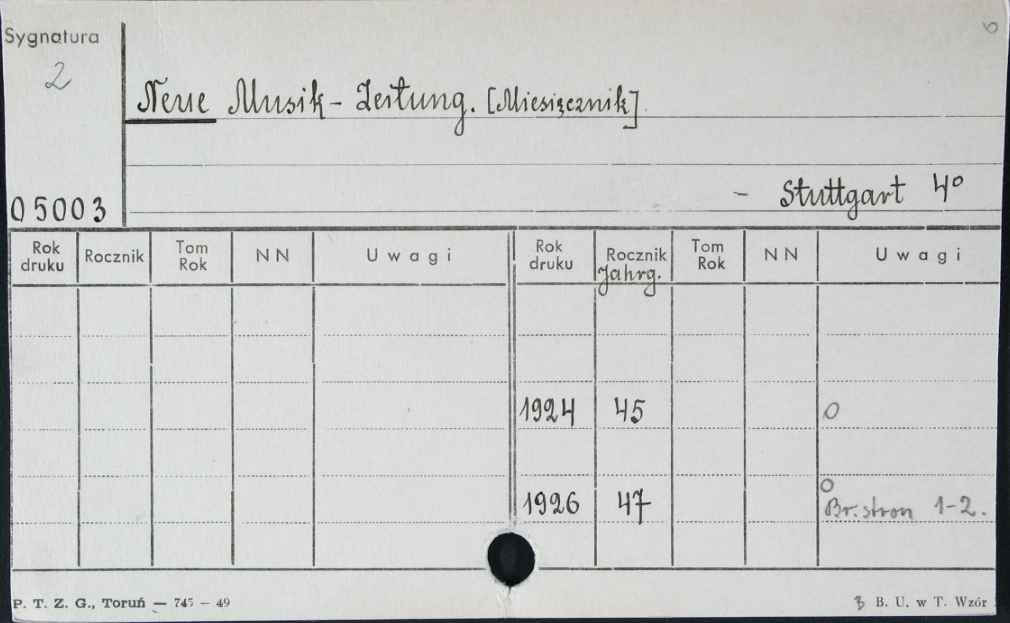 6
Sygnatura
2
Neue Musik - Zeitung. [Miesięcznik].
- Stuttgart 4°
05003
Rok druku Rocznik Tom Rok N N U w a g i Rok druku Rocznik Jahrg. Tom Rok N N U w a g i
1924 45 0
1926 47 0
Br. stron 1-2.
P. T. Z. G., Toruń — 745 — 49
B. U. w T. Wzór